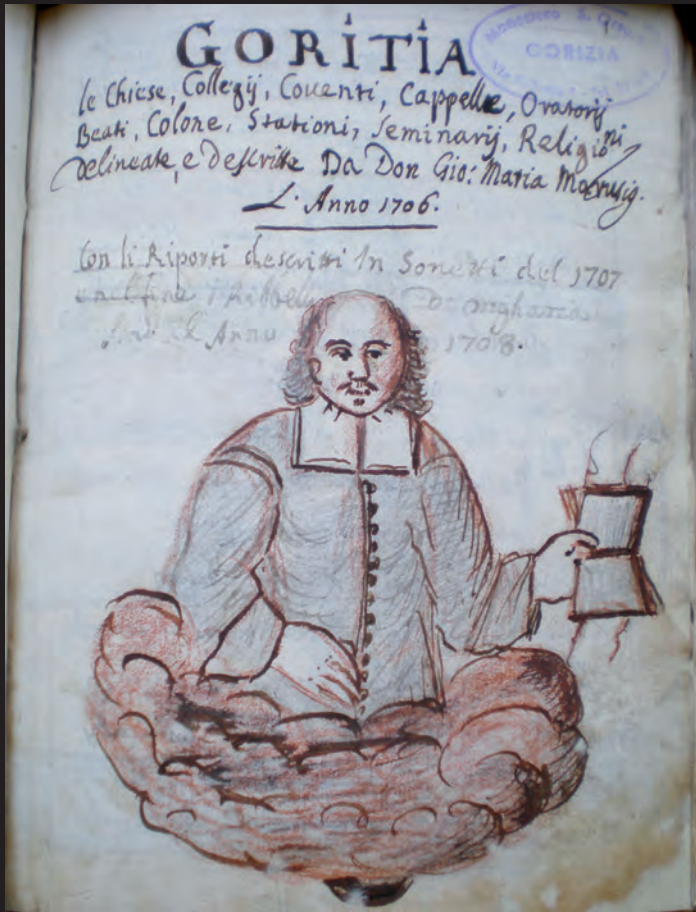 GORITIA
le Chiese, Collegij, Conventi, Cappelle, Oratorij
Beati, Colone, Stationi, Seminarij, Religioni
delineate, e descritte Da Don Gio: Maria Marusig.
L'Anno 1706.
Con li Riporti descritti In Sonetti del 1707
Anno 1708.
GORIZIA